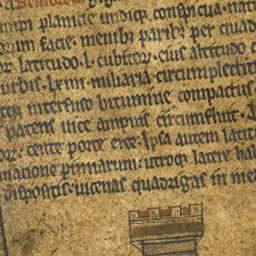 mpi planicie undiqȝ conspicua nat
orum facie. menibȝ paribȝ per quad
latitudo. l. cubitorȝ. eius altitudo
urbis. lxiiii. miliaria circumplectit
interfuso bitumine compactus
patens vice ampnis circumfluit. A
centū porte eree. Ipsa autem latit
matione pinnarum. utroqȝ latere ha
dispositis. vicenas quadrigas in me